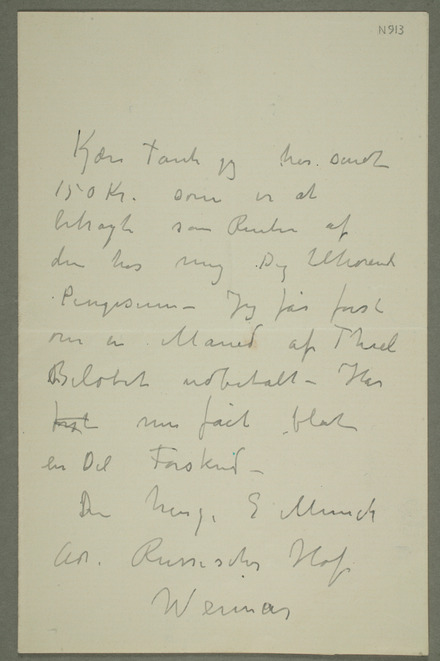 N913
Kære Tank jeg har sendt
150 Kr. som er at
betragte som Renter af
den hos mig Dig tilhørende
Pengesum – Jeg får først
om en Måned af Thiel
Beløbet udbetalt – Har
først nu fået blot
en Del Forskud –
Din heng. E Munch
Adr. Russischer Hof
Weimar